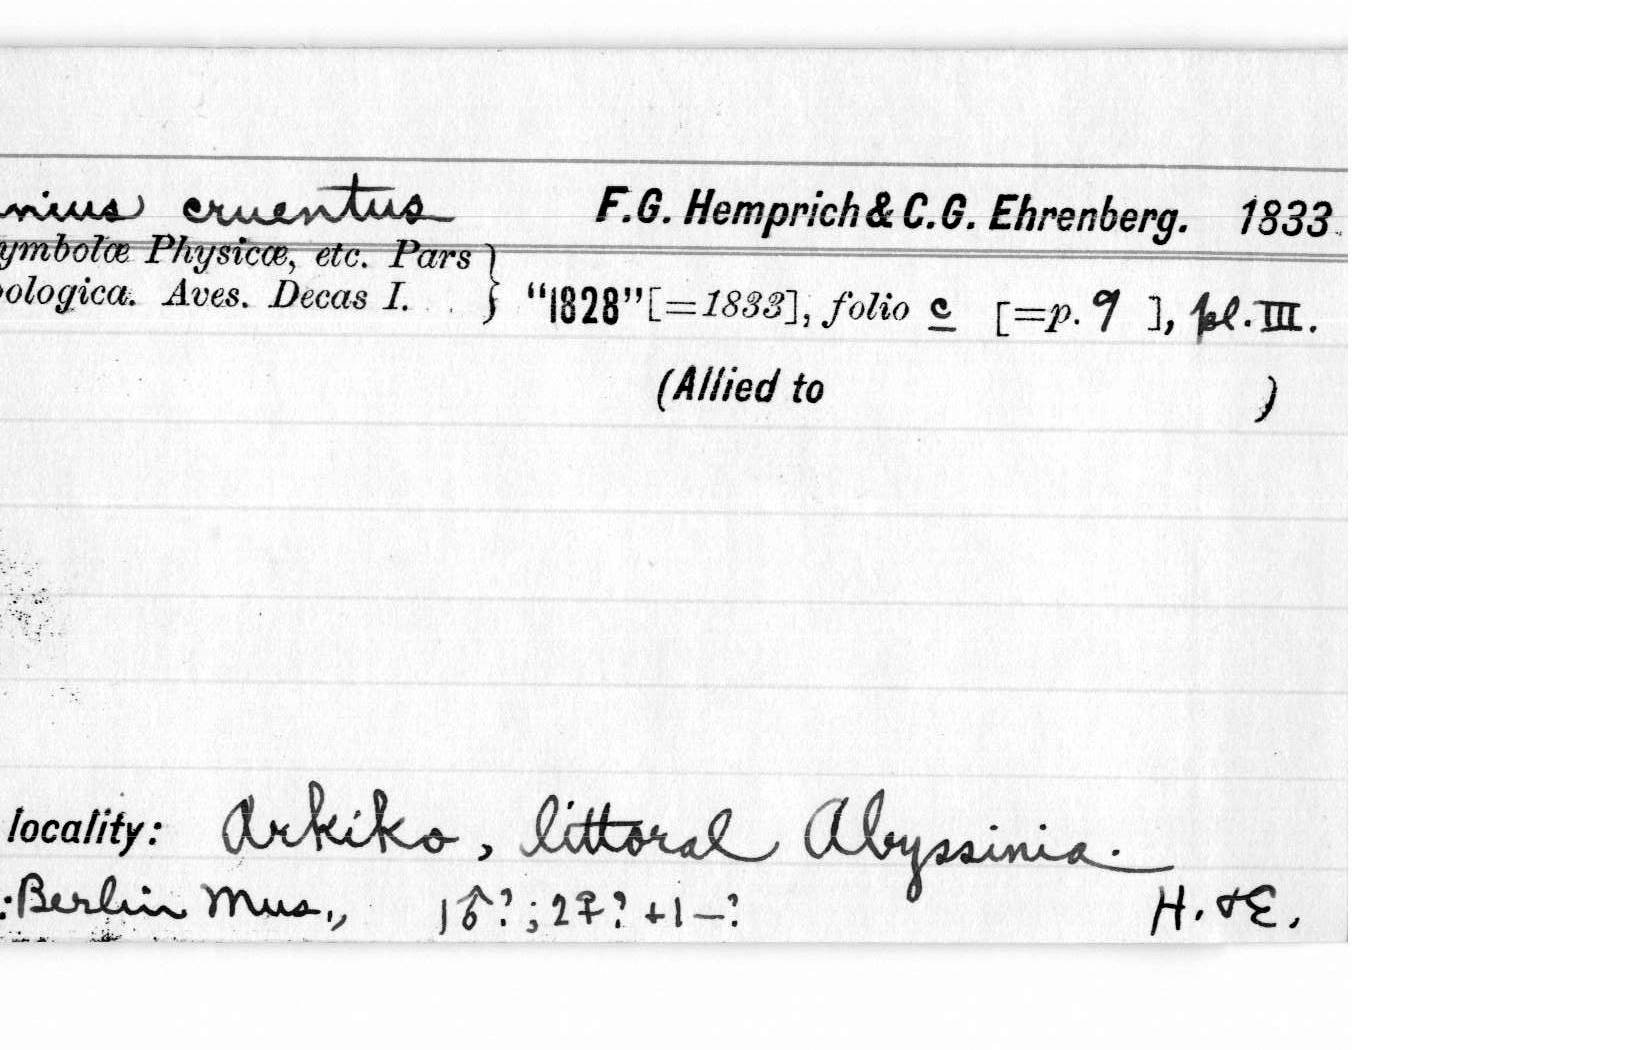 nius cruentus F.G. Hemprich & C.G. Ehrenberg. 1833.
ymbolæ Physicæ, etc. Pars
ologica. Aves. Decas I. . . } "1828" [=1833], folio c [=p. 9 ], pl. III.
(Allied to )
locality: Arkiko, littoral Abyssinia.
: Berlin Mus., 1♂?; 2♀? +1—? H. & E.